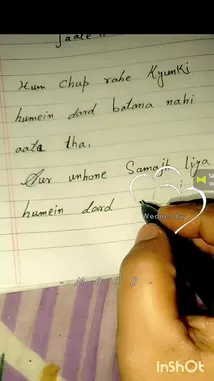 Jaate
Hum chup rahe Kyunki
humein dard batana nahi
aata tha,
Aur unhone Samajh liya
humein dard
Wednesday
InShOt